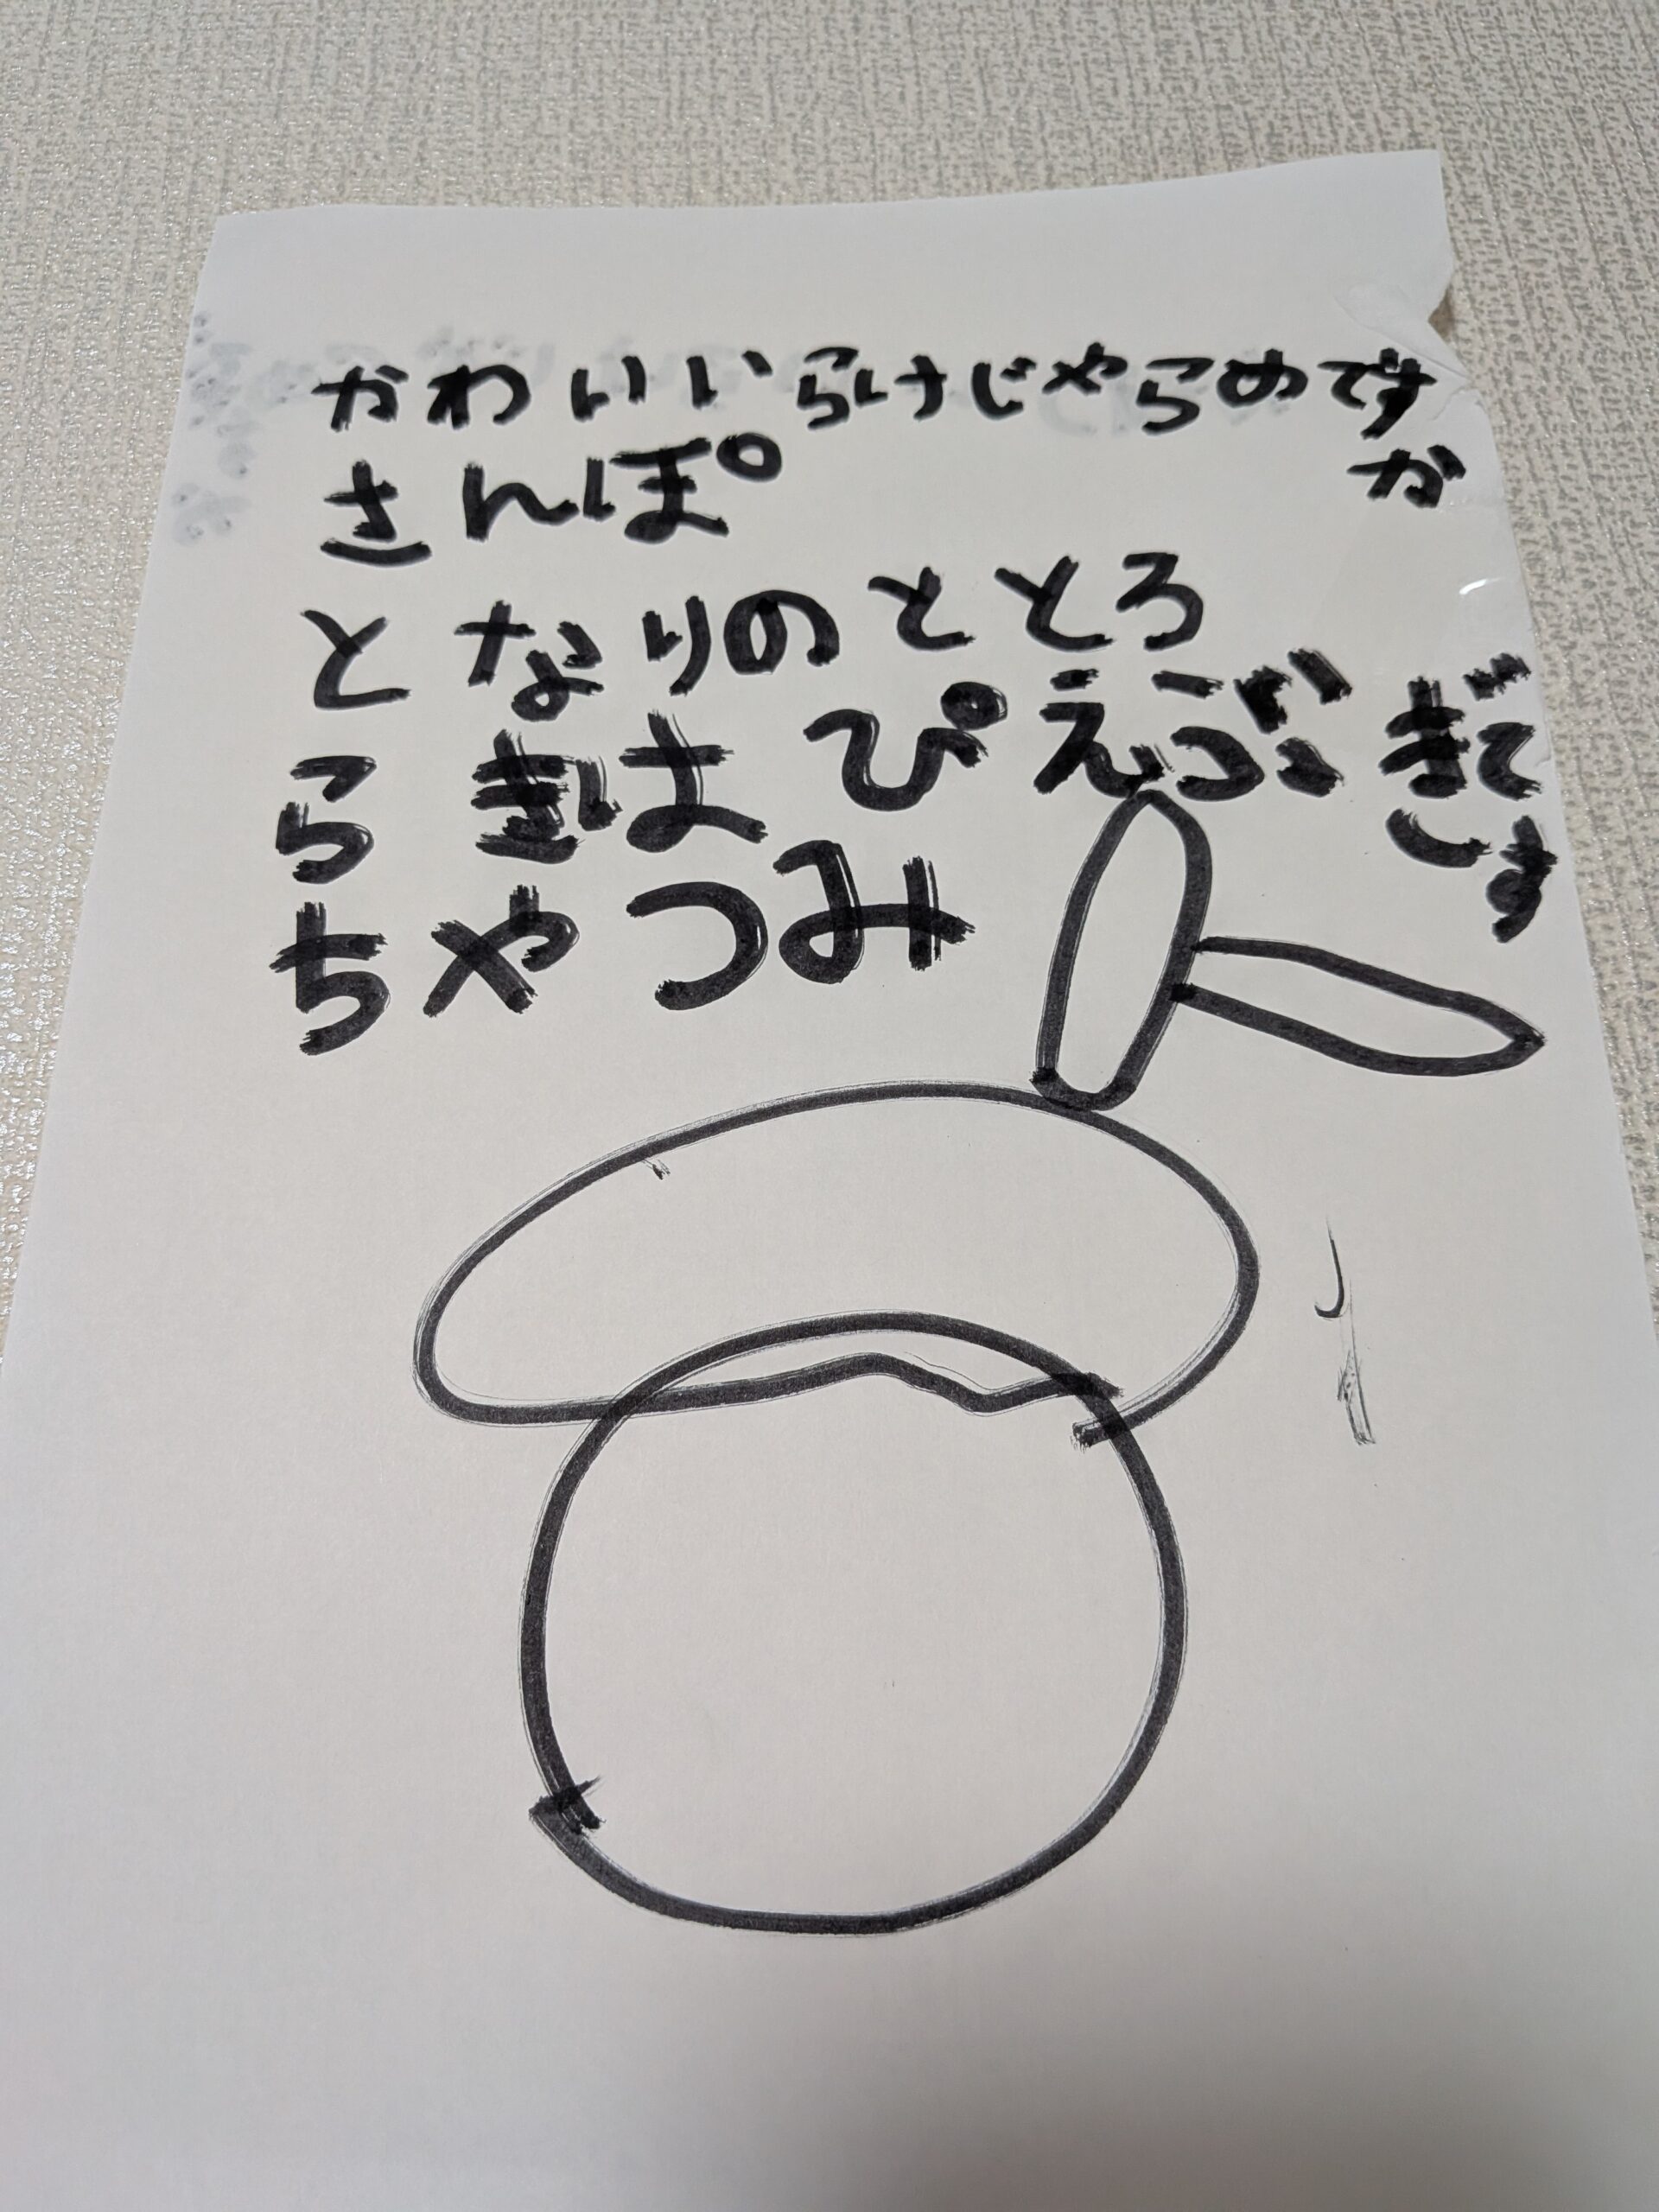 かわいいらけじゃらめです
か
さんぽ
となりのととろ
らぎは ぴえぶ ぎです
ちやつみ